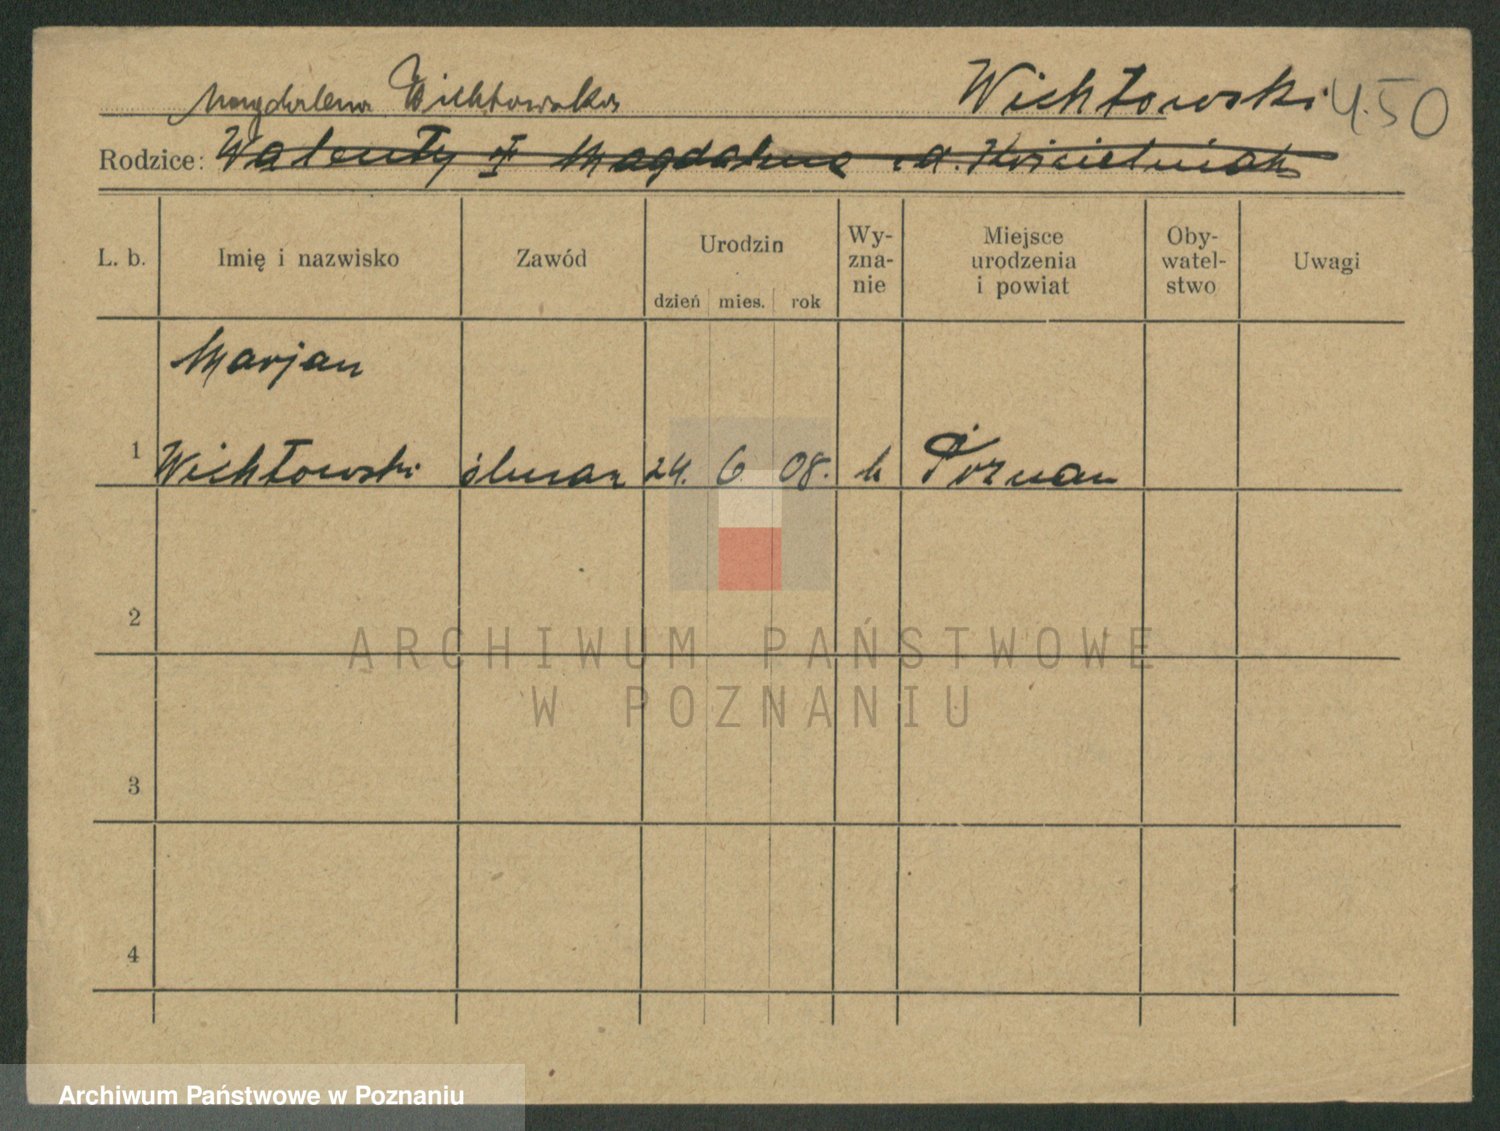 Magdalena Wichtowska Wichłowski 4.50
Rodzice: Walenty i Magdalena d. Kościelniak
L. b. Imię i nazwisko Zawód Urodzin dzień mies. rok Wy-znanie Miejsce urodzenia i powiat Oby-watel-stwo Uwagi
Marjan
1 Wichłowski ślusarz 24. 6 08. k Poznań
2
ARCHIWUM PAŃSTWOWE
W POZNANIU
3
4
Archiwum Państwowe w Poznaniu